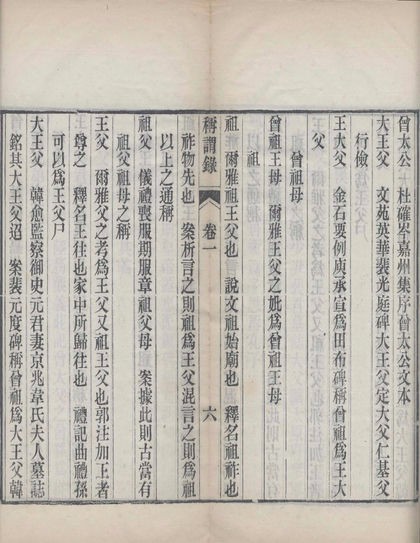 曾太公 杜確岑嘉州集序曾太公文本
大王父 文苑英華裴光庭碑大王父定大父仁基父
行儉
王大父 金石要例庾承宣爲田布碑稱曾祖爲王大
父
曾祖母
曾祖王母 爾雅王父之妣爲曾祖王母
祖
祖 爾雅祖王父也 說文祖始廟也 釋名祖祚也
祚物先也 案析言之則祖爲王父混言之則爲
以上之通稱
祖父 儀禮喪服期服章祖父母 案據此則古當有
祖父祖父母之稱
王父 爾雅父之考爲王父又祖王父也郭注加王者
尊之 釋名王往也家中所歸往也 禮記曲禮孫
可以爲王父尸
大王父 韓愈監察御史元君妻京兆韋氏夫人墓誌
銘其大王父迢 案裴元度碑稱曾祖爲大王父韓
稱謂錄 卷一 六